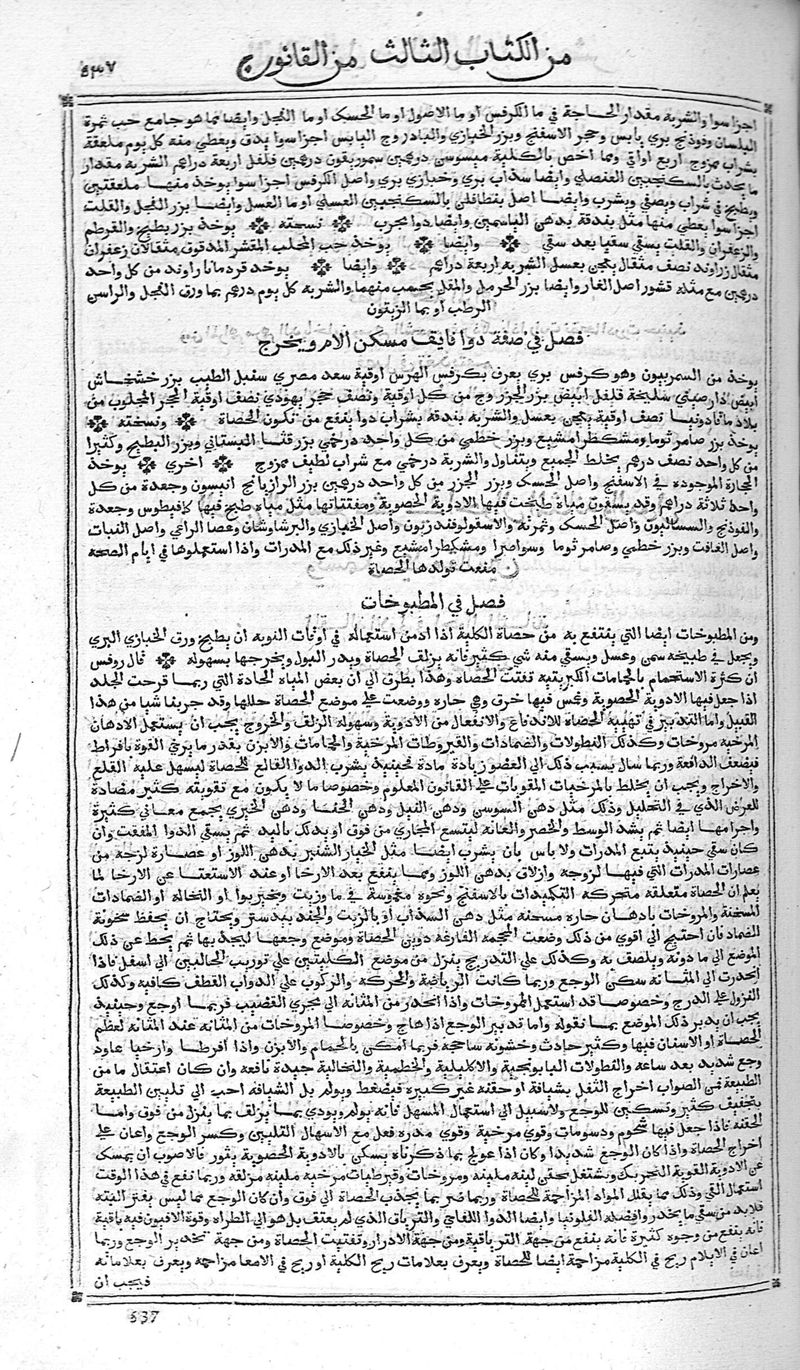 من الكتاب الثالث من القانون ج ٥٣٧
اجزا سوا والشربه مقدار الحاجة في ما الكرفس او ما الاصول او ما الحسك او ما الفجل وايضا مما هو جامع حب ثمرة
البلسان وفوذنج بري يابس وحجر الاسفنج وبزر الخبازي والبادروج اليابس اجزا سوا يدق ويعطي منه كل يوم ملعقة
بشراب ممزوج اربع اواق ومما اخص بالكلية ميسوسن درهمين سموريقون درهمين فلفل اربعة دراهم الشربه مقدار
ما يحدث بالسكنجبين العنصلي وايضا سذاب بري وخبازي بري واصل الكرفس اجزا سوا يوخذ منها ملعقتين
ويطبخ في شراب ويصفي ويشرب وايضا اصل بالسكنجبين العسلي او ما العسل وايضا بزر الفجل والقلت
اجزا سوا يعطي منها مثل بندقة بدهن الياسمين وايضا دوا مجرب نسخته يوخذ بزر بطيخ والقرطم
والزعفران والقلت يستي سقيا بعد ستي وايضا يوخذ حب المحلب المقشر المدقوق مثقالان زعفران
مثقال زراوند نصف مثقال يعجن بعسل الشربه اربعة دراهم وايضا يوخذ قردمانا راوند من كل واحد
درهمين مع مثله قشور اصل الغار وايضا بزر الحرمل والمقل يحبب منهما والشربه كل يوم درهم بما ورق الفجل والراسن
الرطب او بما الزيتون
فصل في صفة دوا فايق مسكن الام ويخرج
يوخذ من السمربيون وهو كرفس بري يعرف بكرفس الهرس اوقية سعد مصري سنبل الطيب بزر خشخاش
ابيض دارصيني سليخة فلفل ابيض بزر الجزر وج من كل اوقية ونصف حجر يهوذي نصف اوقية الحجر المجلوب من
بلاد نصف اوقية يعجن بعسل والشربه بندقة بشراب دوا ينفع من تكون الحصاة ونسخته
يوخذ بزر صامر ثوما ومشكطرامشيع وبزر خطمي من كل واحد درخمي بزر قثا البستاني وبزر البطيخ وكثيرا
من كل واحد نصف درهم يخلط الجميع ويتفاول والشربة درخمي مع شراب لطيف ممزوج اخري يوخذ
الحجارة الموجوده في الاسفنج واصل الحسك وبزر الجزر من كل واحد درهمين بزر الرازيانج انيسون وجعدة من كل
واحد ثلاثة دراهم وقد يسقون مياه طبخت فيها الادوية الحصوية ومفتتاتها مثل مياه طبخ فيها كافيطوس وجعدة
والفوذنج والسساليون واصل الحسك وثمرته والاسقولوفندريون واصل الخبازي والبرشاوشان وعصا الراعي واصل النبات
واصل الغافت وبزر خطمي وصامر ثوما وسواصرا ومشكيطرامشيع وغير ذلك مع المدرات واذا استعملوها في ايام الصحه
منعت تولدها الحصاة
فصل في المطبوخات
ومن المطبوخات ايضا التي ينتفع به من حصاة الكلية اذا اذمن استعماله في اوقات النوبه ان يطبخ ورق الخبازي البري
ويجعل في طبيخه سمن وعسل ويستي منه شي كثير فانه يزلق الحصاة ويدر البول ويخرجها بسهوله قال روفس
ان كثرة الاستحمام بالحمامات الكبريتيه تفتت الحصاه وهذا يطرق الي ان بعض المياه الحادة التي ربما قرحت الجلد
اذا جعل فيها الادوية الحصوية وغمس فيها خرق وهي حاره ووضعت علي موضع الحصاة حللها وقد جربنا شيا من هذا
القبيل واما التدبير في تهيئة الحصاة للاندفاع والانفعال من الادوية وسهوله الزلق والخروج يجب ان يستعمل الادهان
المرخيه مروخات وكذلك النطولات والضمادات والقيروطات المرخية والحمامات والابزن بقدر ما يرخي القوة بافراط
فيضعف الدافعة وربما سال بسبب ذلك الي العضو زيادة مادة فحينيذ يشرب الدوا القالع للحصاة ليسهل عليه القلع
والاخراج ويجب ان يخلط بالمرخيات المقويات علي القانون المعلوم وخصوصا ما لا يكون مع تقويته كثير مضادة
للغرض الذي في التحليل وذلك مثل دهن السوسن ودهن الفيل ودهن الحنا ودهن الخيري يجمع معاني كثيرة
واجرامها ايضا ثم يشد الوسط والخصر والعانه ليتسع المجاري من فوق او يدلك باليد ثم يستي الدوا المفتت وان
كان ستي حينيذ يتبع المدرات ولا باس بان يشرب ايضا مثل الخيار الشنبر بدهن اللوز او عصارة لزجه من
عصارات المدرات التي فيها لزوجه وازلاق بدهن اللوز ومما ينفع بعد الارخا او عند الاستغنا عن الارخا لما
يعلم ان الحصاة متعلقه متحركه التكميدات بالاسفنج ونحوه مغموسة في ما وزيت ويخيزبوا او النخاله او الضمادات
المسخنة والمروخات بادهان حاره مسخنه مثل دهن السذاب او بالزيت والجند بيدستر ويحتاج ان يحفظ سخونة
الضماد فان احتيج الي اقوي من ذلك وضعت المحجمه الفارغه دون الحصاة وموضع وجعها ليجذبها ثم يحط عن ذلك
الموضع الي ما دونه ويلصق به وكذلك علي التدريج ينزل من موضع الكليتين علي توريب الحالبين الي اسفل فاذا
انحدرت الي المثانه سكن الوجع وربما كانت الرياضة والحركه والركوب علي الدواب القطف كافيه وكذلك
النزول علي الدرج وخصوصا قد استعمل المروخات واذا انحدر من المثانه الي مجري القضيب فربما اوجع وحينيذ
يجب ان يدبر ذلك الموضع بما نقوله واما تدبير الوجع اذا هاج وخصوصا المروخات من المثانه عند المثانه لعظم
الحصاة او الاسنان فيها وكثير حادث وخشونه ساحجه فربما امكن بالحمام والابزن واذا افرطا وارخيا عاود
وجع شديد بعد ساعه والنطولات البابونجية والاكليلية والخطمية والنخالية جيدة نافعة وان كان اعتقال ما من
الطبيعة فمن الصواب اخراج الثفل بشيافة او حقنه غير كبيره فيضغط ويولم بل الشيافة احب الي تليين الطبيعة
بتجفيف كثير وتسكين للوجع ولاسبيل الي استعمال المسهل فانه يولم ويوذي بما يزلق بما ينزل من فوق واما
الحقنه فاذا جعل فيها شحوم ودسومات وقوي مرخية وقوي مدره فعل مع الاسهال التليين وكسر الوجع واعان علي
اخراج الحصاة واذا كان الوجع شديدا وكان اذا عولج بما ذكرناه يسكن بالادوية الحصوية يثور فالاصوب ان يمسك
عن الادوية القوية التحريك ويشتغل بحقن لينه ملينه ومروخات وقيرطيات مرخيه ملينه مزلقه وربما نفع في هذا الوقت
استعمال القي وذلك مما يقلل المواد المزاحمة للحصاة وربما ضر بما يجذب الحصاة الي فوق وان كان الوجع مما ليس يفتر البته
فلا بد من سقي ما يخدر وافضله الفلونيا وايضا الدوا اللفاحي والترياق الذي لم يعتق بل هو الي الطراه وقوة الافيون فيه باقية
فانه ينفع من وجوه كثيرة فانه ينفع من جهة الترياقية ومن جهة الادرار وتفتيت الحصاة ومن جهة تخدير الوجع وربما
اعان في الايلام ريح في الكلية مزاحمة ايضا للحصاة ويعرف بعلامات ريح الكلية او ريح في الامعا مزاحمه ويعرف بعلاماته
فيجب ان
537